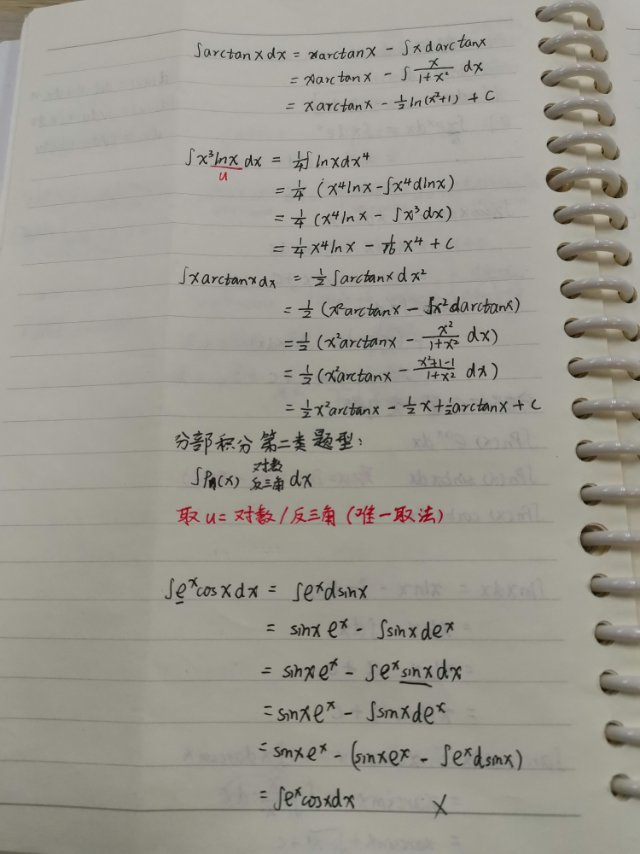 ∫arctanxdx = xarctanx - ∫xdarctanx
= xarctanx - ∫x/(1+x²) dx
= xarctanx - ½ln(x²+1) + C
∫x³lnxdx = ¼∫lnxdx⁴
u
= ¼ (x⁴lnx - ∫x⁴dlnx)
= ¼ (x⁴lnx - ∫x³dx)
= ¼x⁴lnx - 1/16 x⁴ + C
∫xarctanxdx = ½∫arctanxdx²
= ½ (x²arctanx - ∫x²darctanx)
= ½ (x²arctanx - x²/(1+x²) dx)
= ½ (x²arctanx - (x²+1-1)/(1+x²) dx)
= ½x²arctanx - ½x + ½arctanx + C
分部积分第二类题型:
∫Pn(x) 对数 反三角 dx
取u=对数/反三角(唯一取法)
∫eˣcosxdx = ∫eˣdsinx
= sinxeˣ - ∫sinxdeˣ
= sinxeˣ - ∫eˣsinxdx
= sinxeˣ - ∫sinxdeˣ
= sinxeˣ - (sinxeˣ - ∫eˣdsinx)
= ∫eˣcosxdx X